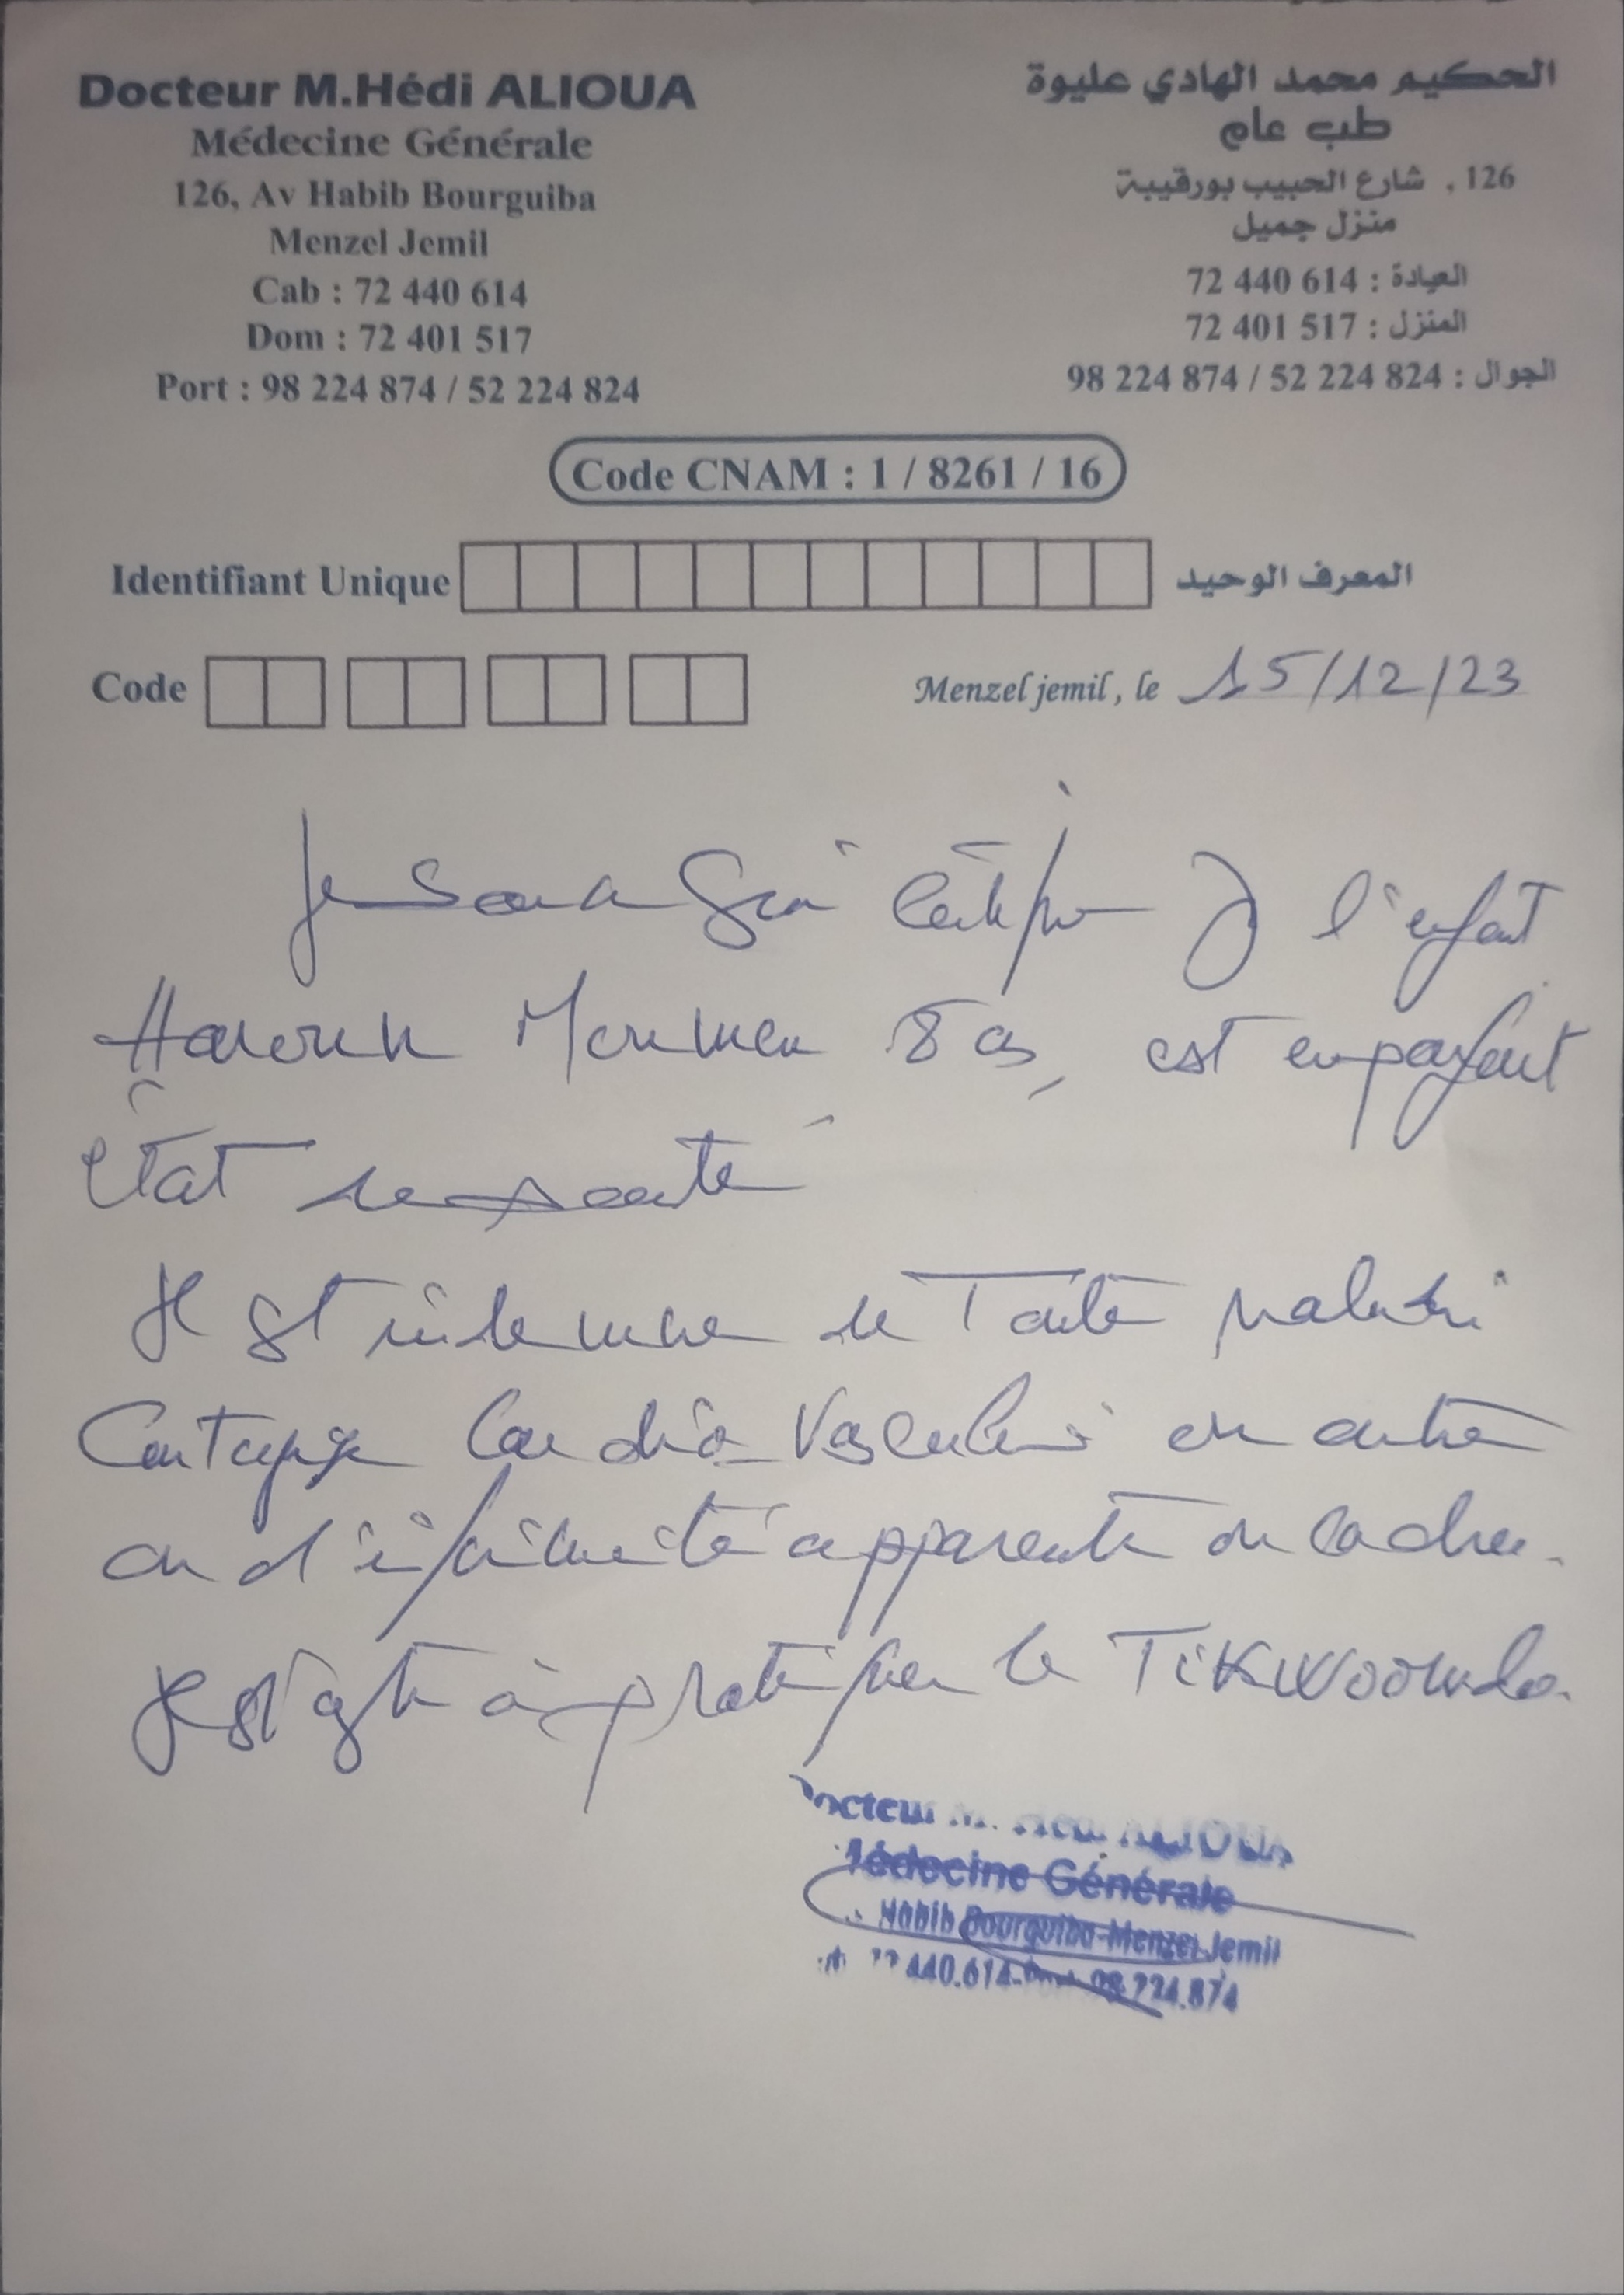 Docteur M.Hédi ALIOUA
Médecine Générale
126, Av Habib Bourguiba
Menzel Jemil
Cab : 72 440 614
Dom : 72 401 517
Port : 98 224 874 / 52 224 824
الحكيم محمد الهادي عليوة
طب عام
126 , شارع الحبيب بورقيبة
منزل جميل
العيادة : 72 440 614
المنزل : 72 401 517
الجوال : 98 224 874 / 52 224 824
Code CNAM : 1 / 8261 / 16
Identifiant Unique المعرف الوحيد
Code
Menzel jemil, le 15/12/23
Je soussigné certifie q l'enfant
Haroun 8 ans, est en parfait
état de santé
Il est indemne de toute maladie
contagieuse cardio-vasculaire ou autre
ou d'infirmité apparente ou cachée.
Il est apte à pratiquer le Tikwoondo.
octeur M. ALIOUA
Médecine Générale
Habib Bourguiba-Menzel Jemil
440.614 98.224.874